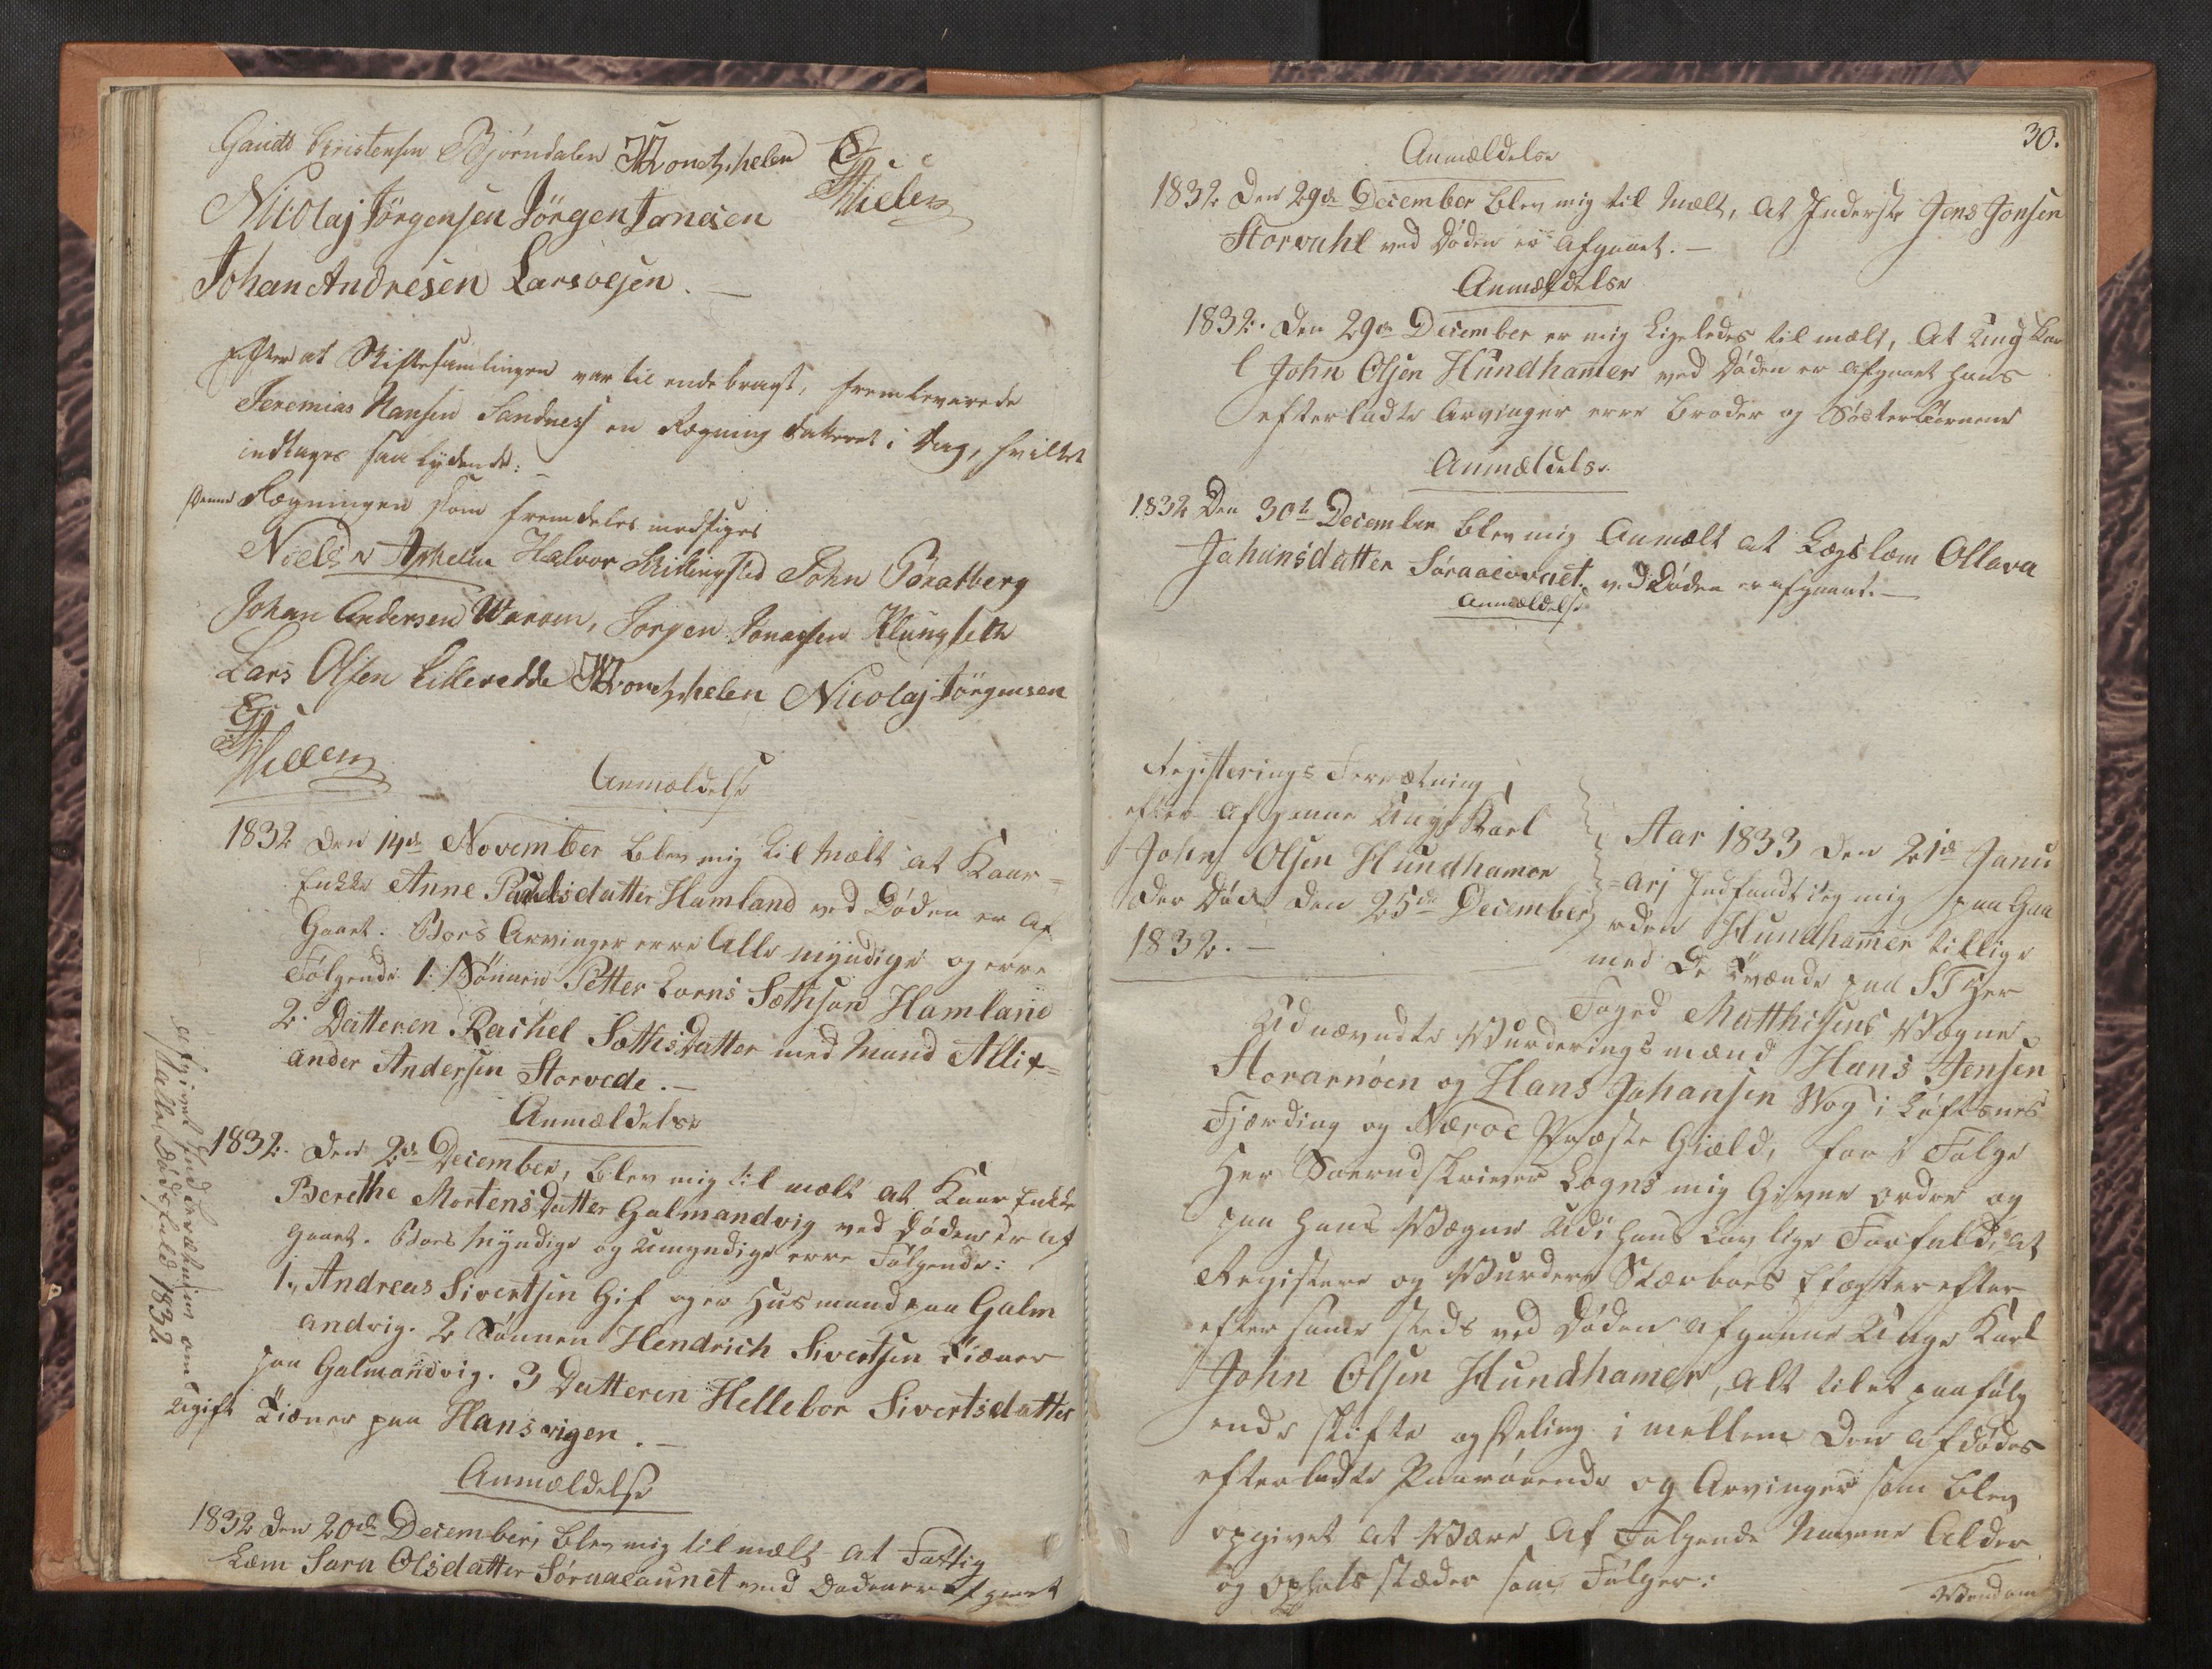 Gaudt Christensen Bjørndalen Kronetzhelen
Nicolaj Jörgensen Jörgen Jonasen
Johan Andresen Lars oesen. —
Efter at Skiftesamlingen var til ende bragt, fremleverede
Jeremias Hansen Sandness en Regning dateret i Dag, hvilket
indtages saa lydende: —
Denne Regningen som fremdeles medsiges
Niels Halvor Skillingsted John
Johan Andersen Warøen, Jørgen Jonassen Klungseth
Lars Olsen Lilleredde Kronetzhelen Nicolaj Jörgensen
Anmældelse
1832 den 14de November blev mig til Mælt at Kaar=
Enkke Anne Paulsdatter Hamland ved Døden er af
Gaaet. Boes Arvinger erre Alle myndige og erre
Følgende 1. Sønnen Petter Lorns Sæthson Hamland
2. Datteren Rachel SæthsDatter med Mand Allix=
ander Andersen Storvede. —
Anmældelse
1832. Den 2de December, blev mig til mælt at Kaar Enkke
Berethe MortensDatter Galmandvig ved Døden er af
gaaet. Boes Myndige og umyndige erre Følgende:
1., Andreas Sivertsen Gif og er Husmand paa Galm
andvig. 2 Sønnen Hendrich Sivertsen Tiæner
paa Galmandvig. 3 Datteren Hellebor Sivertsdatter
ugift Tiæner paa Hansvigen. —
Anmældelse
1832 den 20de December, blev mig til mælt at Fattig
Læm Sara Olsdatter Söraacaunet ved Døden er afgaaet
Afgivet Inderætning om
alle Dødsfald 1832
30.
Anmældelse
1832 Den 29de December blev mig til Mælt, at Inderste Jens Jonsen
Storvahl ved Døden er afgaaet. —
Anmældelse
1832. Den 29de December er mig Ligeledes til mælt, at Ung Kar
l John Olsen Hundhamer ved Døden er afgaaet hans
efterladte Arvinger erre Broder og Søsterbørnene
Anmældelse
1832 Den 30te December blev mig Anmælt at Lægslæm Ollava
Johansdatter Söraacovnet ved Døden er afgaaet. —
Anmældelse
Registerings Forrætning
efter afgangne Unge Karl
John Olsen Hundhamer
der Døde den 25de December
1832. —
Aar 1833 den 21de Janu
=arj Indfandt ieg mig paa Gaa
rden Hundhamer tillige
med De Tvænde paa ST Her
Foged Matthisens Vægne
Udnævndte Vurderingsmænd Hans Jensen
Storarnøen og Hans Johansen Wog i Løftsnes
Fjærding og Næroe Præste Giæld, for i Følge
Her Sorendskriver Logns mig Givne ordre og
paa hans Vægne Udi hans Lovlige Forfald, at
Registere og Vurdere Stærboes Efægter efter
efter samme steds ved Døden afgangne Unge Karl
John Olsen Hundhamer, alt til et paafølg
ende skifte og Deling i mellem Den afdødes
efterladte Paarørende og Arvinger som blev
opgivet at Være af Følgende Navne Alder
og Opholds stæder som Følger:
Vend om